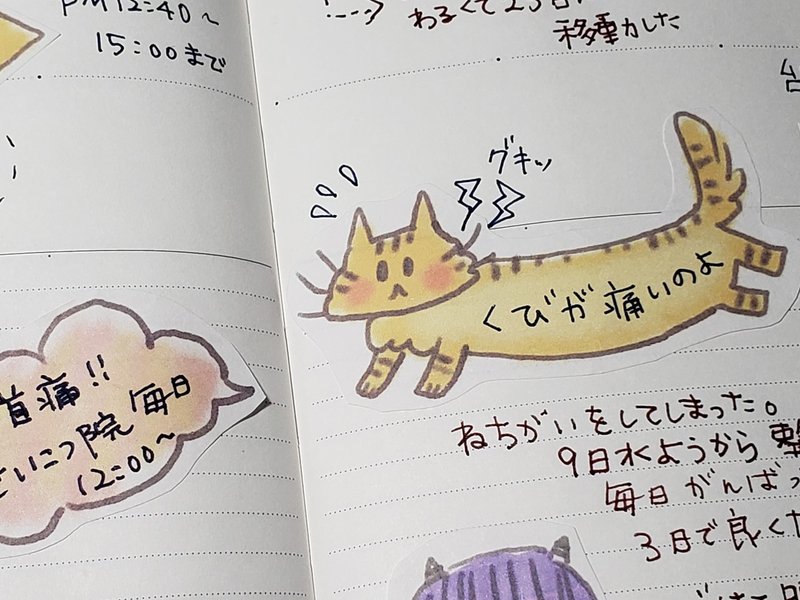 PM12:40～
15:00まで
首痛!!
せいこつ院 毎日
12:00～
わるくて23日
移動した
グキッ
くびが痛いのよ
ねちがいをしてしまった。
9日水ようから 整
毎日がんばっ
3日で良くな